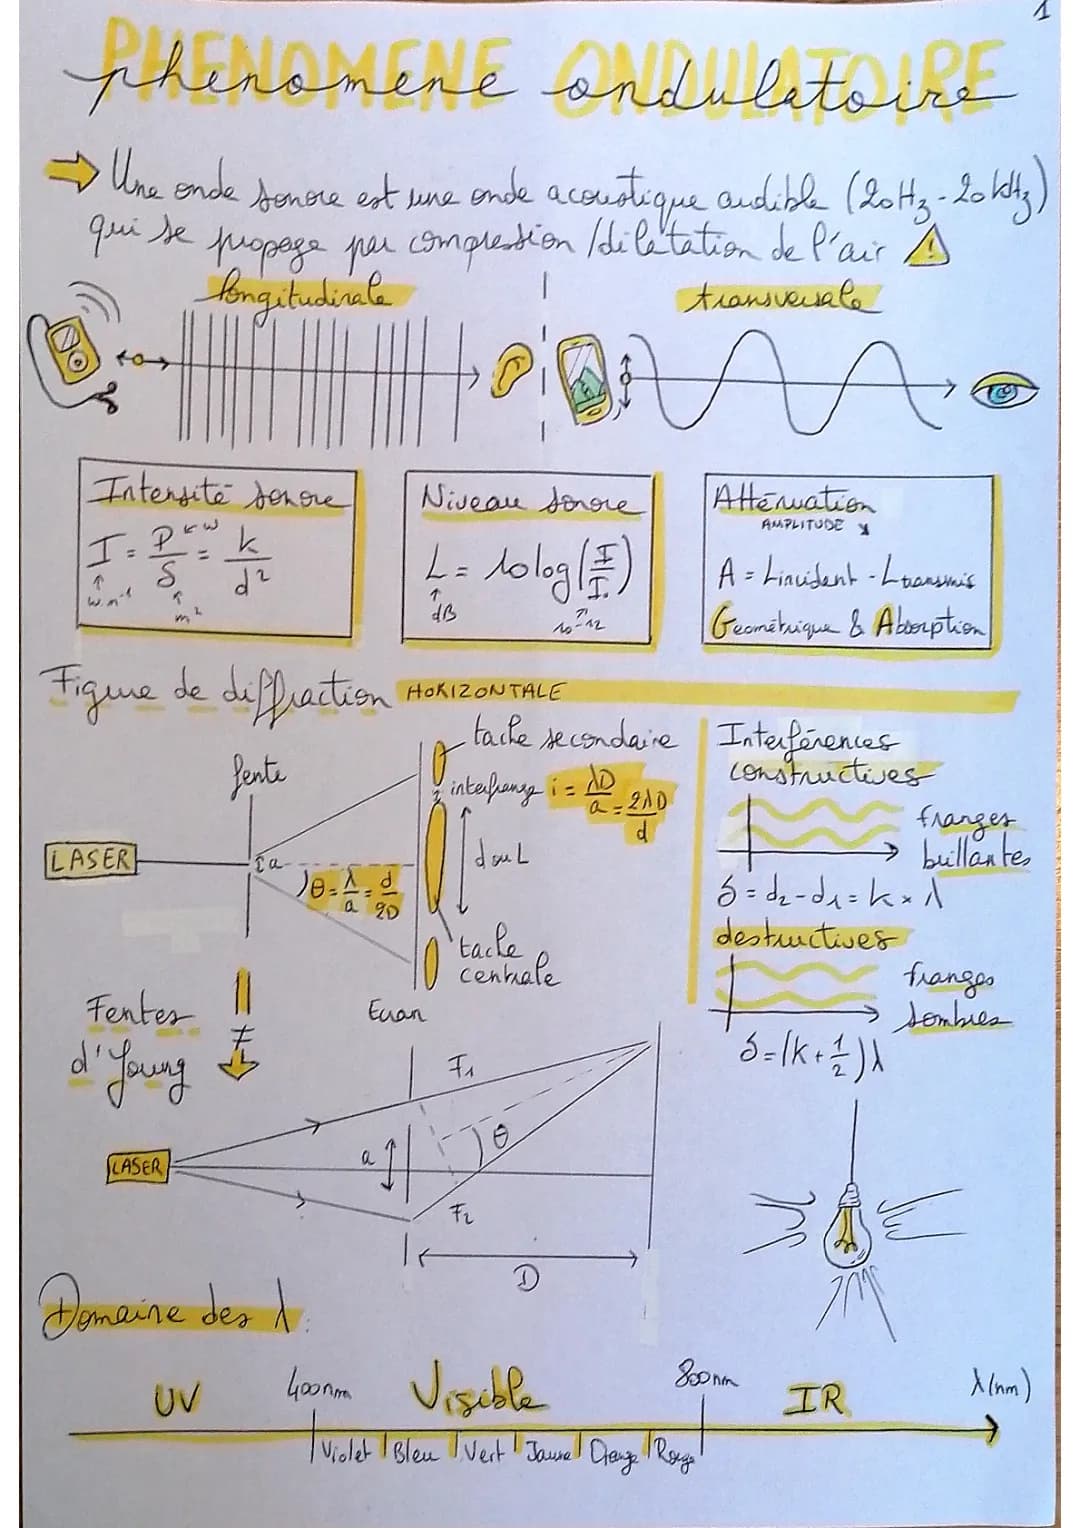 1
PHENOMENE ONDULATOIRE
phenomene ondulatoire
→ Une onde sonore est une onde acoustique audible (20Hz-20kHz)
qui se propage par compression / dilatation de l'air !
longitudinale
transversale
Intensité sonore
I = P ← W / S = k / d²
↑ W.m⁻¹
↑ m²
Niveau sonore
L = 10log(I/I₀)
↑ dB
↑ 10⁻¹²
Atténuation
AMPLITUDE ↘
A = Lincident - Ltransmis
Géométrique & Absorption
Figure de diffraction HORIZONTALE
fente
LASER
a
θ = λ/a = d/2D
tache secondaire
interfrange i = λD/a = 2λD/d
d ou L
tache
centrale
Ecran
Interférences
constructives
franges
brillantes
δ = d₂ - d₁ = k × λ
destructives
franges
sombres
δ = (k + 1/2)λ
Fentes
d'Young
≠
LASER
a
F₁
θ
F₂
D
Domaine des λ:
UV
400nm
Visible
800nm
IR
λ(nm)
Violet | Bleu | Vert | Jaune | Orange | Rouge